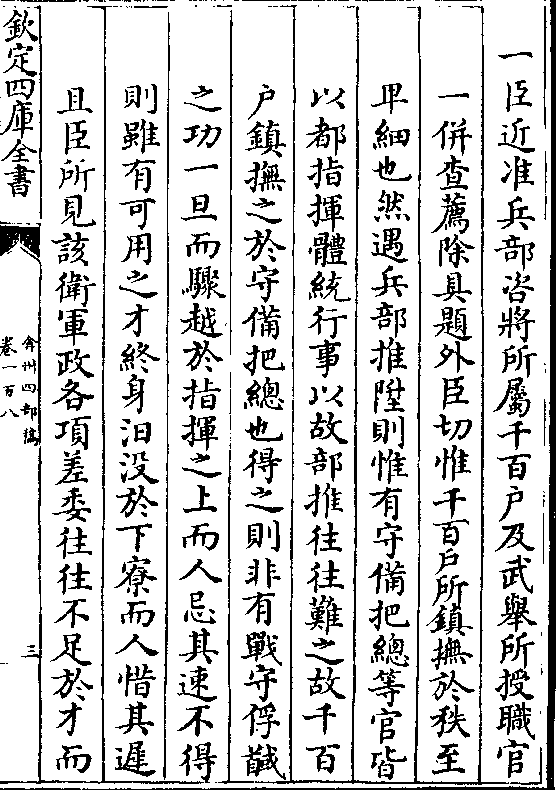 一臣近准兵部咨將所屬千百戶及武舉所授職官
一併查薦除具題外臣切惟千百戶所鎮撫於秩至
卑細也然遇兵部推陞則惟有守備把總等官皆
以都指揮體統行事以故部推往往難之故千百
戶鎮撫之於守備把總也得之則非有戰守俘馘
之功一旦而驟越於指揮之上而人忌其速不得
則雖有可用之才終身汩没於下寮而人惜其遲
且臣所見該衛軍政各項差委往往不足於才而
欽定四庫全書
弇州四部稿
卷一百八
三